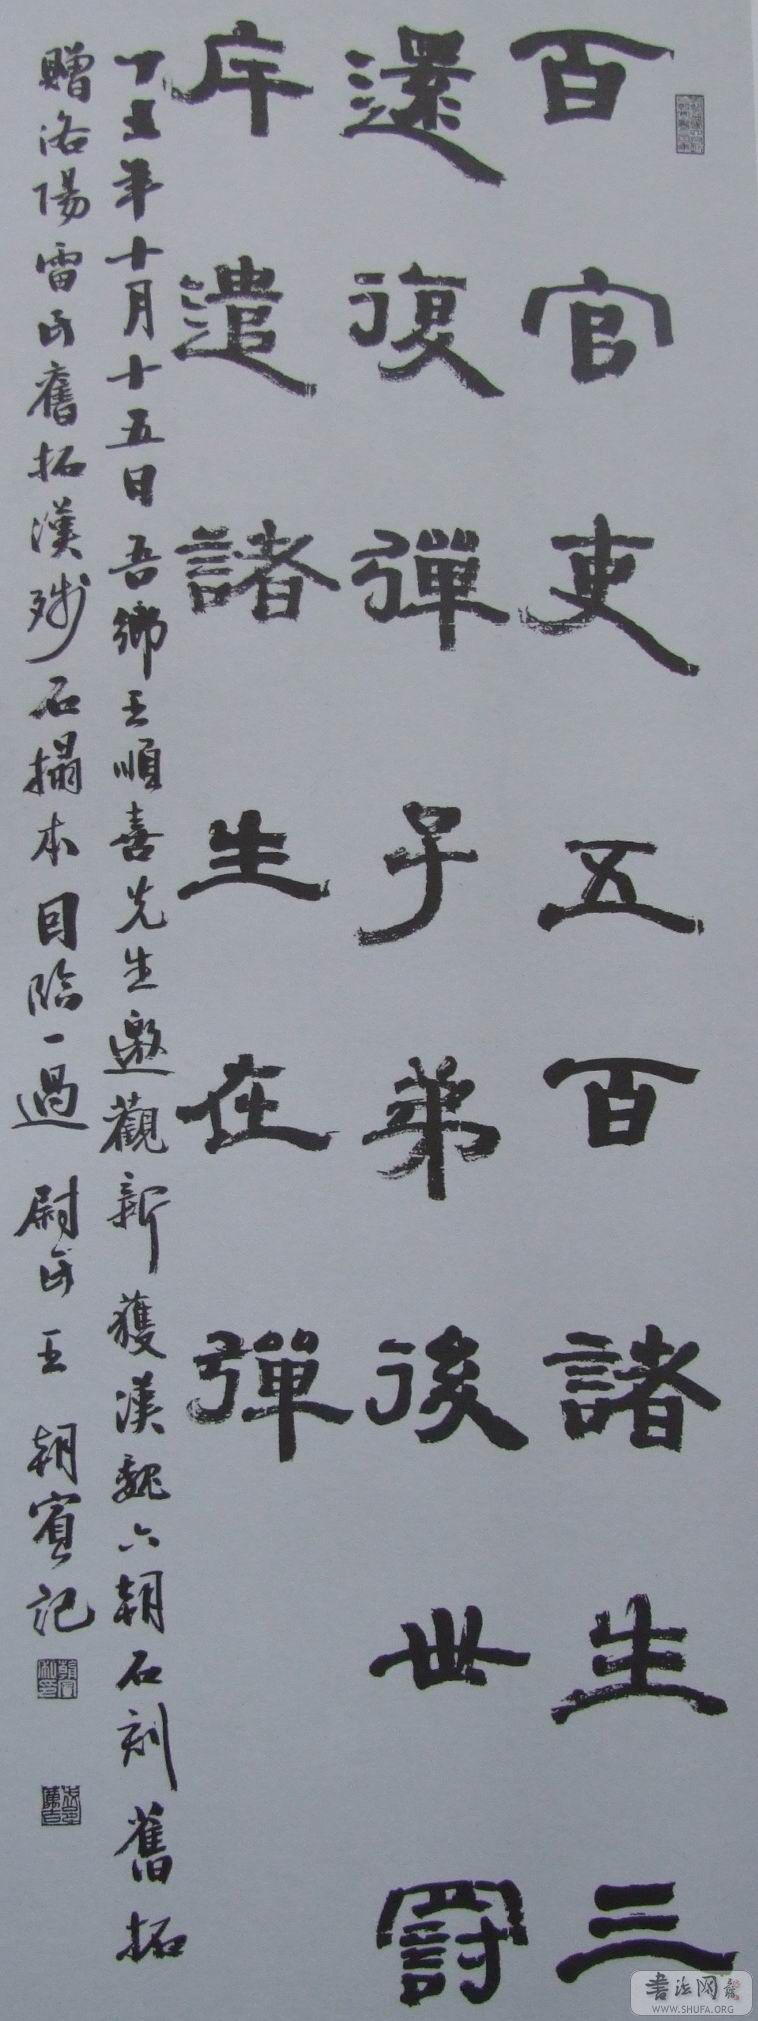 百官吏五百諸生三
還復彈子弟後世罰
斥遣諸生在彈
丁丑年十月十五日吾鄉王順喜先生邀觀新獲漢魏六朝石刻舊拓
贈洛陽雷氏舊拓漢殘石搨本目臨一過 尉氏王朝賓記
書法网
WWW.SHUFA.ORG